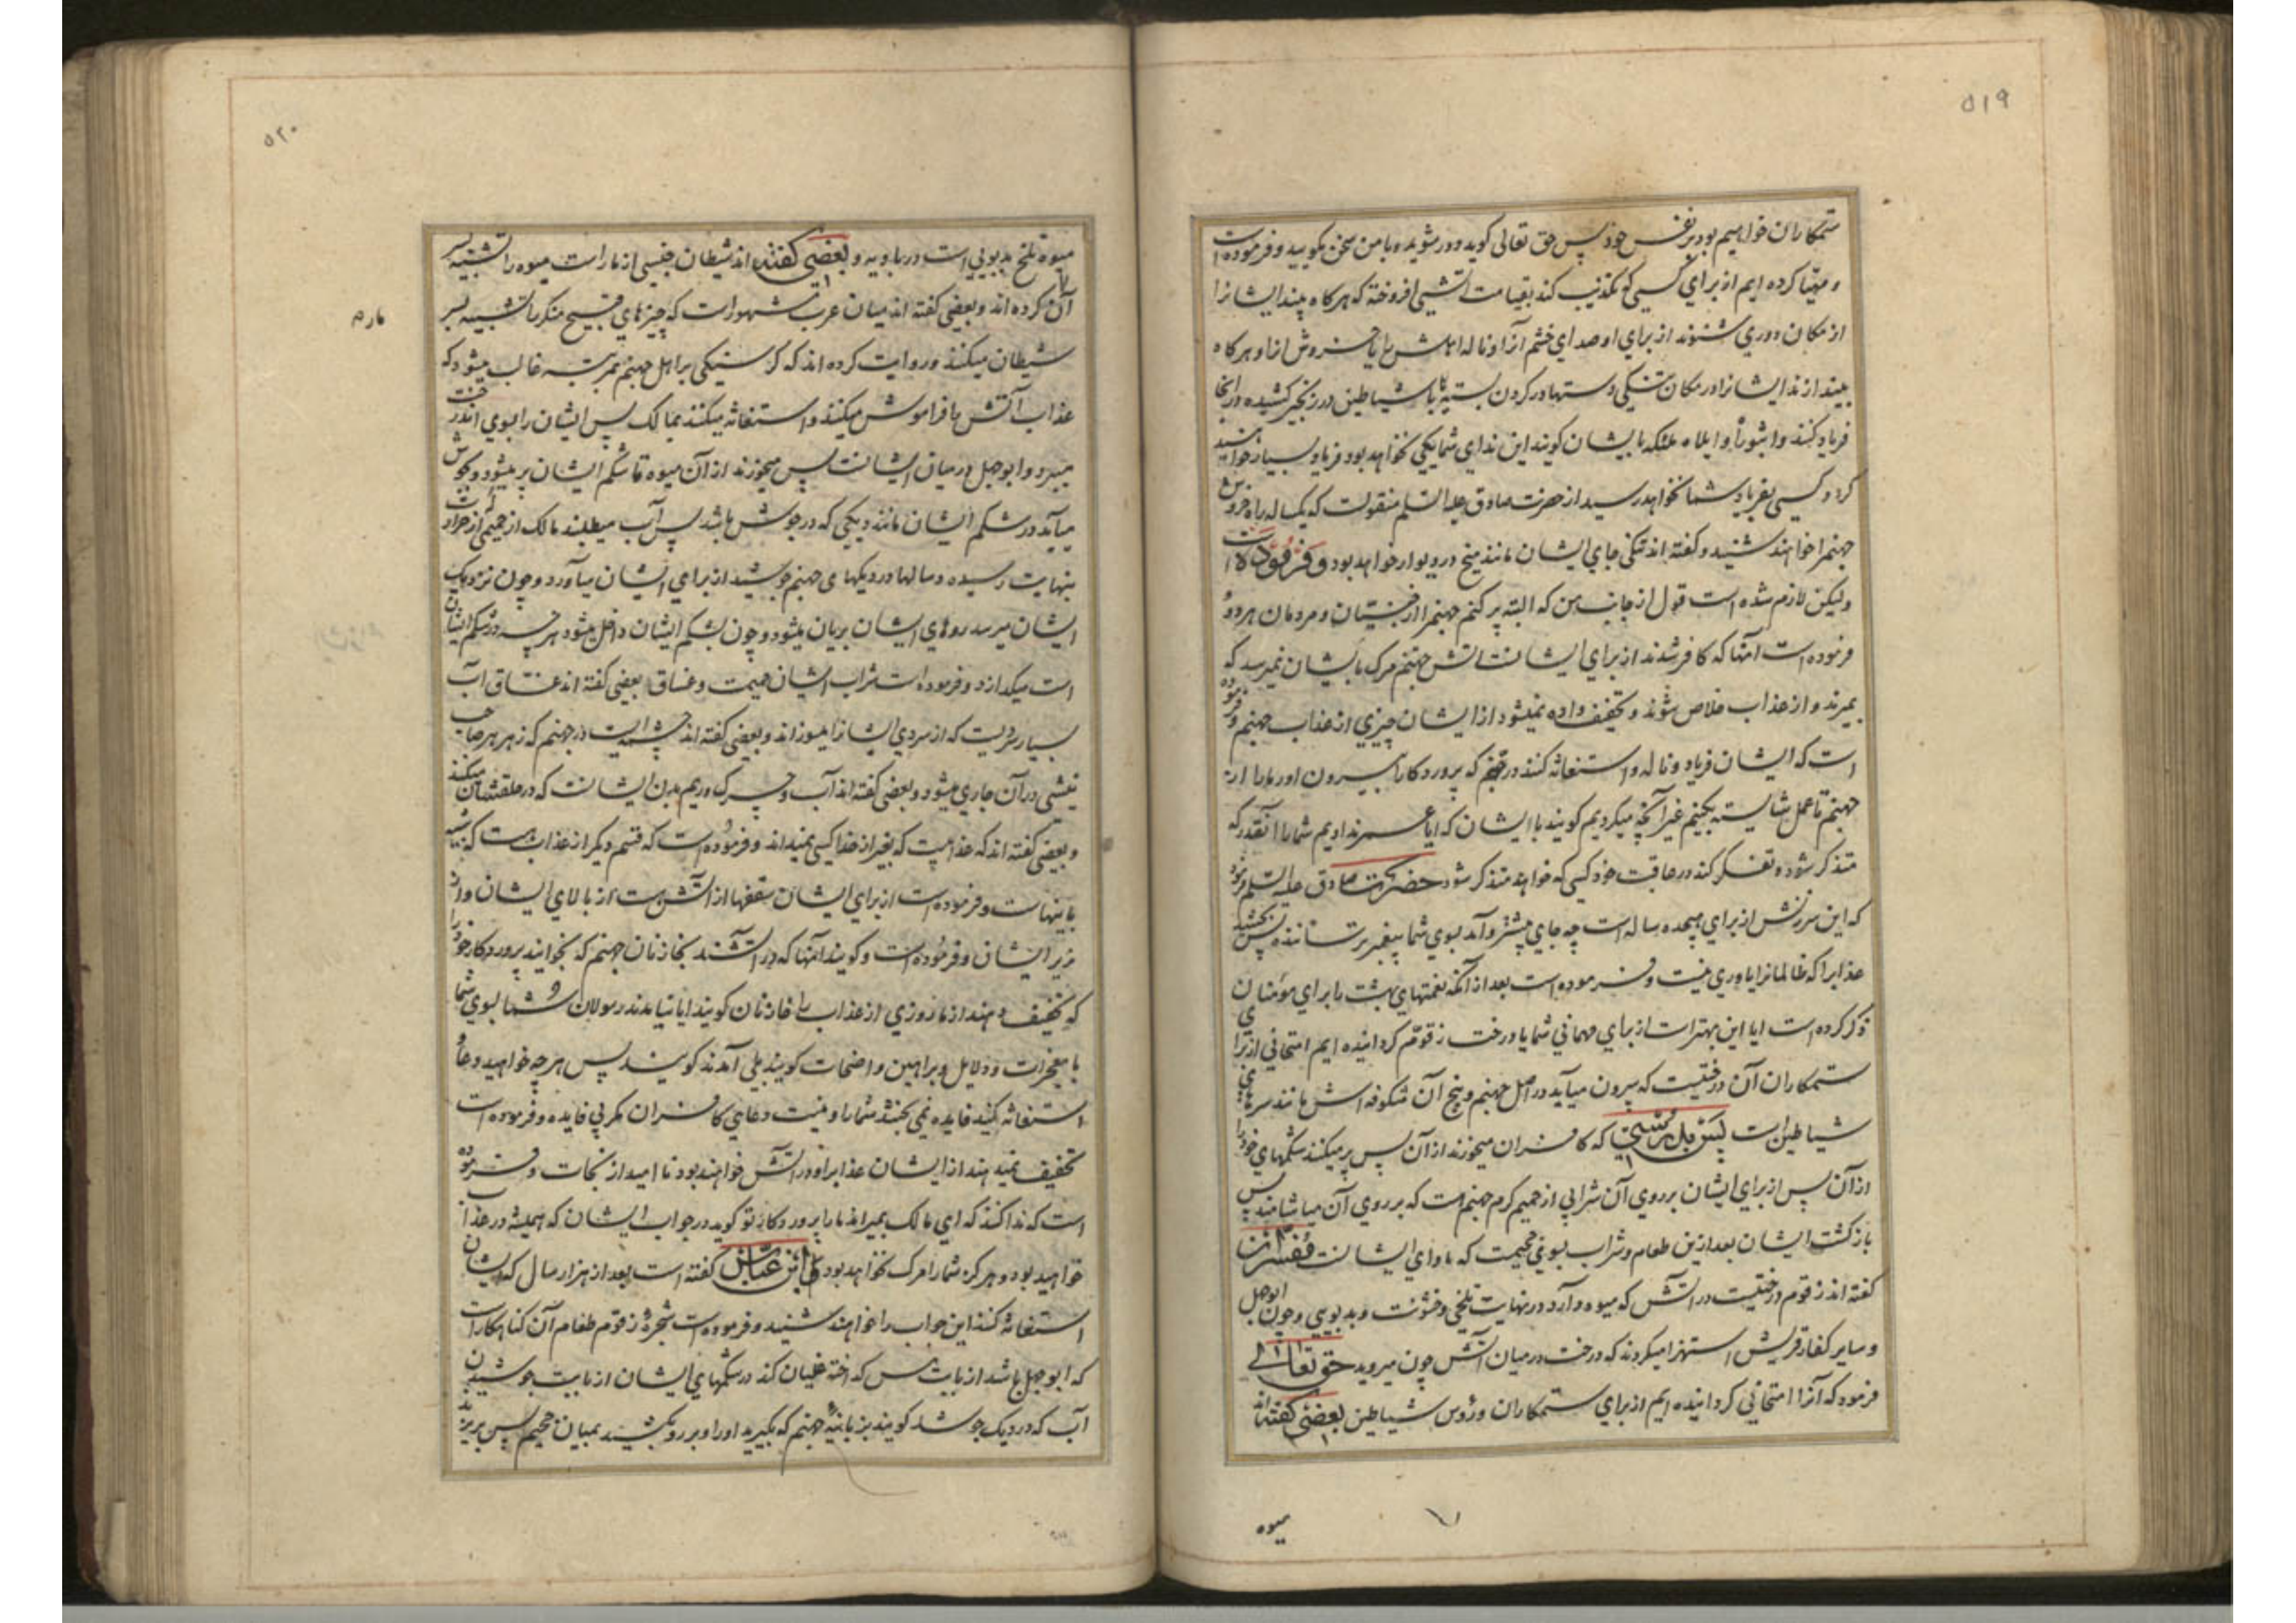 ۵۱۹
ستمکاران خواهیم بود بر نفس خود پس حق تعالی گوید دور شوید و با من سخن مگویید و فرموده است
و مهیا کرده ایم از برای کسی که تکذیب کند بقیامت آتشی افروخته که هرگاه بیند ایشانرا
از مکان دوری شنوند از برای او صدای خشم آنرا و ناله اهلش را یا خروش از او هرگاه
بیندازند ایشانرا در مکان تنگی دستها در گردن بسته یا با شیاطین در زنجیر کشیده در آنجا
فریاد کنند واثبوراه واویلاه ملئکه بایشان گویند این ندای شما یکی نخواهد بود فریاد بسیار خواهید
کرد و کسی بفریاد شما نخواهد رسید از حضرت صادق علیه السلم منقولست که یکساله راه خروش
جهنمرا خواهند شنید و گفته اند تنگی جای ایشان مانند میخ در دیوار خواهد بود و فرموده است
ولیکن لازم شده است قول از جانب من که البته پر کنم جهنمرا از جنیان و مردمان هر دو و
فرموده است آنها که کافر شدند از برای ایشانست آتش جهنم مرگ بایشان نمیرسد که
بمیرند و از عذاب خلاص شوند و تخفیف داده نمیشود از ایشان چیزی از عذاب جهنم و فرموده
است که ایشان فریاد و ناله و استغاثه کنند در جهنم که پروردگارا بیرون آور ما را از
جهنم تا عمل شایسته بکنیم غیر آنچه میکردیم گویند با ایشان که آیا عمر ندادیم شما را آنقدر که
متذکر شود و تفکر کند در عاقبت خود کسی که خواهد متذکر شود حضرت صادق علیه السلم فرمود
که این سرزنش از برای هیجده ساله است چه جای بیشتر و آمد بسوی شما پیغمبر ترساننده پس بچشید
عذابرا که ظالمانرا یاوری نیست و فرموده است بعد از آنکه نعمتهای بهشت را برای مؤمنان
ذکر کرده است آیا این بهتر است از برای مهمانی شما یا درخت زقوم گردانیده ایم امتحانی از برای
ستمکاران آن درختیست که بیرون میآید در اصل جهنم و بیخ آن شکوفه اش مانند سرهای
شیاطین است پس بدرستی که کافران میخورند از آن پس پر میکنند شکمهای خود را
از آن پس از برای ایشان بر روی آن شرابی از حمیم گرم جهنم است که بر روی آن میاشامند پس
بازگشت ایشان بعد ازین طعام و شراب بسوی جحیمست که ماوای ایشانست مفسران
گفته اند زقوم درختیست در آتش که میوه دارد در نهایت تلخی و خشونت و بدبویی و چون ابوجهل
و سایر کفار قریش استهزا میکردند که درخت در میان آتش چون میروید حق تعالی
فرمود که آنرا امتحانی گردانیده ایم از برای ستمکاران و رؤس شیاطین بعضی گفته اند
میوه
۵۲۰
میوه تلخ بدبویی است در بادیه و بعضی گفته اند شیطان جنسی از مار است میوه را تشبیه بسر
آن کرده اند و بعضی گفته اند میان عرب مشهور است که چیزهای قبیح منکر را تشبیه بسر
شیطان میکنند و روایت کرده اند که گرسنگی بر اهل جهنم بمرتبه غالب میشود که
عذاب آتش را فراموش میکنند و استغاثه میکنند بمالک پس ایشان را بسوی آن درخت
میبرد و ابوجهل در میان ایشانست پس میخورند از آن میوه تا شکم ایشان پر میشود و بجوش
میآید در شکم ایشان مانند دیگی که در جوش باشد پس آب میطلبند مالک از حمیمی از حرارت
بنهایت رسیده و سالها در دیگهای جهنم جوشیده از برای ایشان میآورد و چون نزدیک
ایشان میرسد روهای ایشان بریان میشود و چون بشکم ایشان داخل میشود هر چه در شکم ایشان
است میگدازد و فرموده است شراب ایشان حمیمست و غساق بعضی گفته اند غساق آب
بسیار سردیست که از سردی ایشانرا میسوزاند و بعضی گفته اند چشمه ایست در جهنم که زهر هر صاحب
نیشی در آن جاری میشود و بعضی گفته اند آب و چرک و ریم بدن ایشانست که در حلقشان میکنند
و بعضی گفته اند که عذابیست که بغیر از خدا کسی نمیداند و فرموده است که قسم دیگر از عذاب هست که شبیه
باینهاست و فرموده است از برای ایشان سقفها از آتش هست از بالای ایشان و از
زیر ایشان و فرموده است و گویند آنها که در آتشند بخازنان جهنم که بخوانید پروردگار خود را
که تخفیف دهند از ما روزی از عذاب را خازنان گویند آیا نیامدند رسولان شما بسوی شما
با معجزات و دلایل و براهین واضحات گویند بلی آمدند گویند پس هر چه خواهید دعا و
استغاثه کنید فایده نمی بخشد شما را و نیست دعای کافران مگر بی فایده و فرموده است
تخفیف نمیدهند از ایشان عذابرا و در آتش خواهند بود نا امید از نجات و فرموده
است که ندا کنند که ای مالک بمیراند ما را پروردگار تو گوید در جواب ایشان که همیشه در عذاب
خواهید بود و هرگز شما را مرگ نخواهد بود ابن عباس گفته است بعد از هزار سال که ایشان
استغاثه کنند این جواب را خواهند شنید و فرموده است شجره زقوم طعام آن گناهکار است
که ابوجهل باشد از بابت مس گداخته غلیان کند در شکمهای ایشان از بابت جوشیدن
آب که در دیک جوشد گویند بزبانیه جهنم که بگیرید او را و بر رو بکشید بمیان جحیم پس بریزید